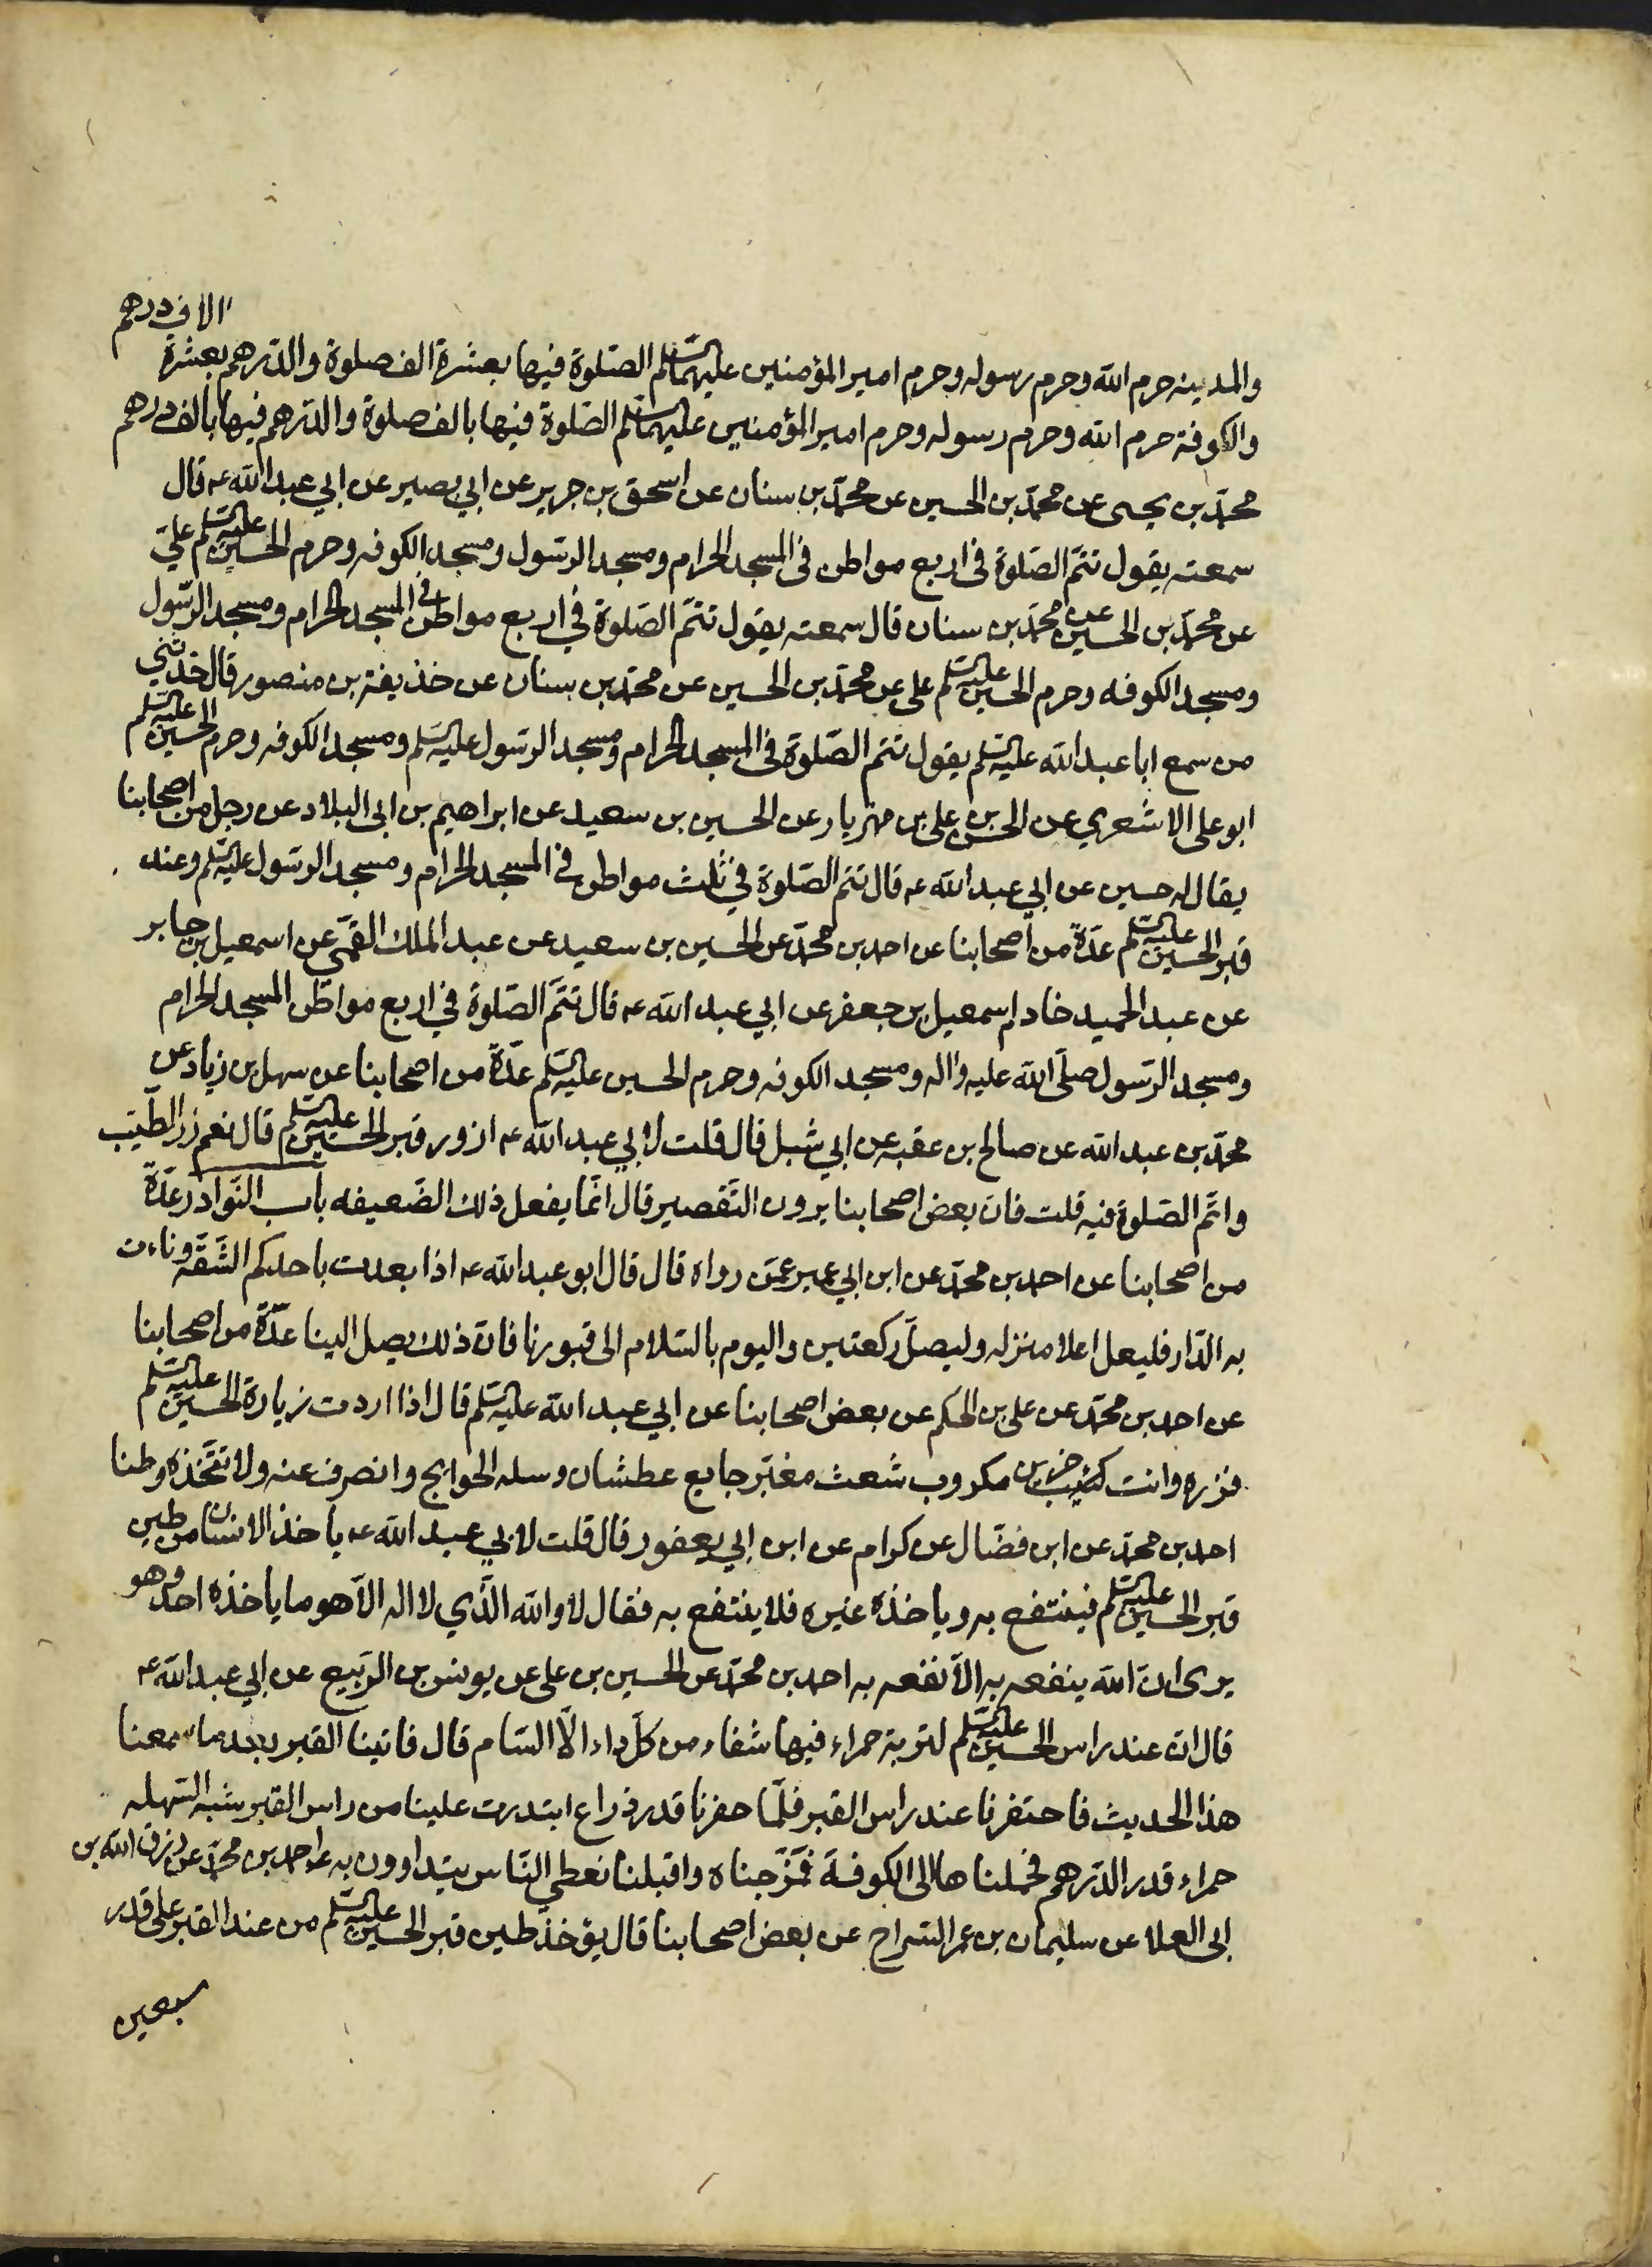 الاف درهم
والمدينه حرم الله وحرم رسوله وحرم امير المؤمنين عليهما السلم الصّلوة فيها بعشرة الف صلوة والدّرهم بعشرة
والكوفة حرم الله وحرم رسوله وحرم امير المؤمنين عليهما السلم الصّلوة فيها بالف صلوة والدّرهم فيها بالف درهم
محمّد بن يحيى عن محمّد بن الحسين عن محمّد بن سنان عن اسحق بن جرير عن ابي بصير عن ابي عبد الله ع قال
سمعته يقول تتمّ الصّلوة في اربع مواطن في المسجد الحرام ومسجد الرّسول ومسجد الكوفه وحرم الحسين عليه السلم علىّ
عن محمّد بن الحسين عن محمّد بن سنان قال سمعته يقول تتمّ الصّلوة في اربع مواطن في المسجد الحرام ومسجد الرّسول
ومسجد الكوفه وحرم الحسين عليه السلم على عن محمّد بن الحسين عن محمّد بن سنان عن خذيفة بن منصور قال حدّثني
من سمع ابا عبد الله عليه السلم يقول تتم الصّلوة في المسجد الحرام ومسجد الرّسول عليه السلم ومسجد الكوفه وحرم الحسين عليه السلم
ابو على الاشعري عن الحسن بن على بن مهزيار عن الحسين بن سعيد عن ابراهيم بن ابي البلاد عن رجل من اصحابنا
يقال له حسين عن ابي عبد الله ع قال تتم الصّلوة في ثلث مواطن في المسجد الحرام ومسجد الرّسول عليه السلم وعند
قبر الحسين عليه السلم عدّة من اصحابنا عن احمد بن محمّد عن الحسين بن سعيد عن عبد الملك القمّي عن اسمعيل بن جابر
عن عبد الحميد خادم اسمعيل بن جعفر عن ابي عبد الله ع قال تتمّ الصّلوة في اربع مواطن المسجد الحرام
ومسجد الرّسول صلّى الله عليه واله ومسجد الكوفه وحرم الحسين عليه السلم عدّة من اصحابنا عن سهل بن زياد عن
محمّد بن عبد الله عن صالح بن عقبه عن ابي شبل قال قلت لابي عبد الله ع ازور قبر الحسين عليه السلم قال نعم زر الطّيّب
واتمّ الصّلوة فيه قلت فانّ بعض اصحابنا يرون التّقصير قال انّما يفعل ذلك الضّعيفه باب النّوادر عدّة
من اصحابنا عن احمد بن محمّد عن ابن ابي عمير عمّن رواه قال قال ابو عبد الله ع اذا بعدت باحدكم الشّقّه وناءت
به الدّار فليعل اعلا منزله وليصلّ ركعتين واليوم بالسّلام الى قبورنا فانّ ذلك يصل الينا عدّة من اصحابنا
عن احمد بن محمّد عن على بن الحكم عن بعض اصحابنا عن ابي عبد الله عليه السلم قال اذا اردت زيارة الحسين عليه السلم
فزره وانت كئيب حزين مكروب شعث مغبّر جايع عطشان وسله الحوايج وانصرف عنه ولا تتّخذه وطنا
احمد بن محمّد عن ابن فضّال عن كرام عن ابن ابي يعفور قال قلت لابي عبد الله ع ياخذ الانسان من طين
قبر الحسين عليه السلم فينتفع به وياخذه غيره فلا ينتفع به فقال لا والله الّذي لا اله الّا هو ما ياخذه احد وهو
يرى انّ الله ينفعه به الّا نفعه به احمد بن محمّد عن الحسين بن على عن يونس بن الرّبيع عن ابي عبد الله ع
قال انّ عند راس الحسين عليه السلم لتربة حمراء فيها شفاء من كلّ داء الّا السّام قال فاتينا القبر بعد ما سمعنا
هذا الحديث فاحتفرنا عند راس القبر فلمّا حفرنا قدر ذراع ابتدرت علينا من راس القبر شبه السّهله
حمراء قدر الدّرهم فحملناها الى الكوفة فمزّجناه واقبلنا نعطي النّاس يتداوون به احمد بن محمّد عن رزق الله بن
ابي العلا عن سليمان بن عمر السّراج عن بعض اصحابنا قال يؤخذ طين قبر الحسين عليه السلم من عند القبر على قدر
سبعين